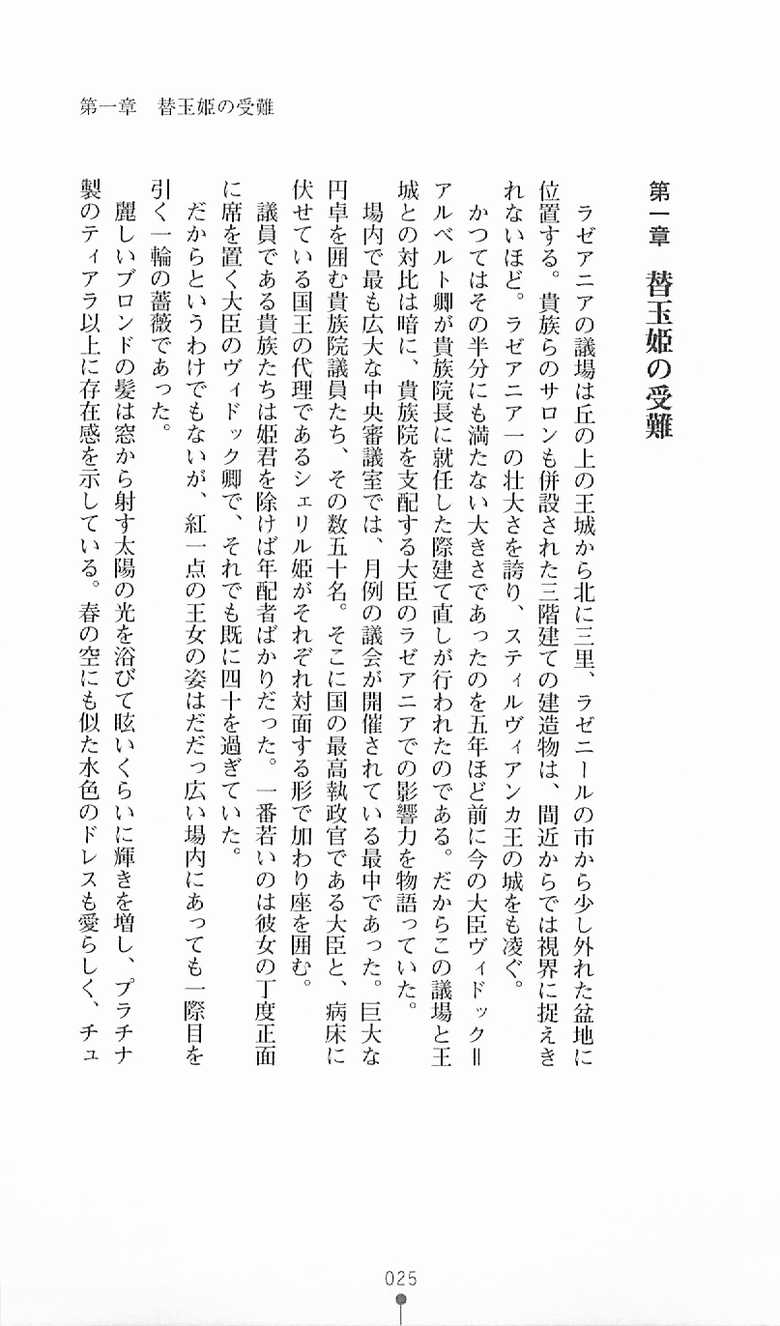 第一章　替玉姫の受難
第一章　替玉姫の受難
　ラゼアニアの議場は丘の上の王城から北に三里、ラゼニールの市から少し外れた盆地に
位置する。貴族らのサロンも併設された三階建ての建造物は、間近からでは視界に捉えき
れないほど。ラゼアニア一の壮大さを誇り、スティルヴィアンカ王の城をも凌ぐ。
　かつてはその半分にも満たない大きさであったのを五年ほど前に今の大臣ヴィドック＝
アルベルト卿が貴族院長に就任した際建て直しが行われたのである。だからこの議場と王
城との対比は暗に、貴族院を支配する大臣のラゼアニアでの影響力を物語っていた。
　場内で最も広大な中央審議室では、月例の議会が開催されている最中であった。巨大な
円卓を囲む貴族院議員たち、その数五十名。そこに国の最高執政官である大臣と、病床に
伏せている国王の代理であるシェリル姫がそれぞれ対面する形で加わり座を囲む。
　議員である貴族たちは姫君を除けば年配者ばかりだった。一番若いのは彼女の丁度正面
に席を置く大臣のヴィドック卿で、それでも既に四十を過ぎていた。
　だからというわけでもないが、紅一点の王女の姿はだだっ広い場内にあっても一際目を
引く一輪の薔薇であった。
　麗しいブロンドの髪は窓から射す太陽の光を浴びて眩いくらいに輝きを増し、プラチナ
製のティアラ以上に存在感を示している。春の空にも似た水色のドレスも愛らしく、チュ
025